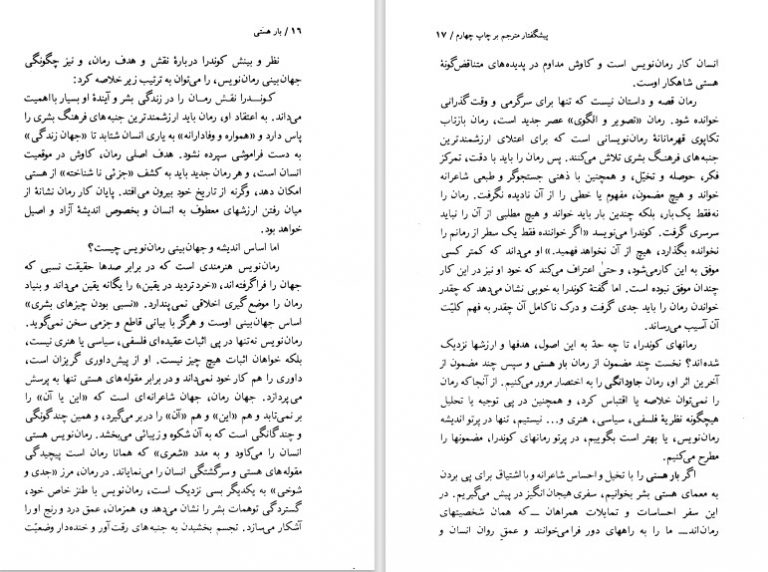 ۱۶ / بار هستی
نظر و بینش کوندرا دربارهٔ نقش و هدف رمان، و نیز چگونگی
جهان‌بینی رمان‌نویس، را می‌توان به ترتیب زیر خلاصه کرد:
کوندرا نقش رمان را در زندگی بشر و آیندهٔ او بسیار بااهمیت
می‌داند. به اعتقاد او، رمان باید ارزشمندترین جنبه‌های فرهنگ بشری را
پاس دارد و «همواره و وفادارانه» به یاری انسان شتابد تا «جهان زندگی»
به دست فراموشی سپرده نشود. هدف اصلی رمان، کاوش در موقعیت
انسان است، و هر رمان جدید باید به کشف «جزئی ناشناخته» از هستی
امکان دهد، وگرنه از تاریخ خود بیرون می‌افتد. پایان کار رمان نشانهٔ از
میان رفتن ارزشهای معطوف به انسان و بخصوص اندیشهٔ آزاد و اصیل
خواهد بود.
اما اساس اندیشه و جهان‌بینی رمان‌نویس چیست؟
رمان‌نویس هنرمندی است که در برابر صدها حقیقت نسبی که
جهان را فراگرفته‌اند، «خرد تردید در یقین» را یگانه یقین می‌داند و بنیاد
رمان را موضع‌گیری اخلاقی نمی‌پندارد. «نسبی بودن چیزهای بشری»
اساس جهان‌بینی اوست و هرگز با بیانی قاطع و جزمی سخن نمی‌گوید.
رمان‌نویس نه‌تنها در پی اثبات عقیده‌ای فلسفی، سیاسی یا هنری نیست،
بلکه خواهان اثبات هیچ چیز نیست. او از پیش‌داوری گریزان است،
داوری را هم کار خود نمی‌داند و در برابر مقوله‌های هستی تنها به پرسش
می‌پردازد. جهان رمان، جهان شاعرانه‌ای است که «این یا آن» را
بر نمی‌تابد و هم «این» و هم «آن» را در بر می‌گیرد، و همین چندگونگی
و چندگانگی است که به آن شکوه و زیبائی می‌بخشد. رمان‌نویس هستی
انسان را می‌کاود و به مدد «شعری» که همانا رمان است پیچیدگی
مقوله‌های هستی و سرگشتگی انسان را می‌نمایاند. در رمان، مرز «جدی و
شوخی» به یکدیگر بسی نزدیک است، رمان‌نویس با طنز خاص خود،
گستردگی توهمات بشر را نشان می‌دهد و، همزمان، عمق درد و رنج او را
آشکار می‌سازد. تجسم بخشیدن به جنبه‌های رقت‌آور و خنده‌دار وضعیّت
پیشگفتار مترجم بر چاپ چهارم / ۱۷
انسان کار رمان‌نویس است و کاوش مداوم در پدیده‌های متناقض‌گونهٔ
هستی شاهکار اوست.
رمان قصه و داستان نیست که تنها برای سرگرمی و وقت‌گذرانی
خوانده شود. رمان «تصویر و الگوی» عصر جدید است، رمان بازتاب
تکاپوی قهرمانانهٔ رمان‌نویسانی است که برای اعتلای ارزشمندترین
جنبه‌های فرهنگ بشری تلاش می‌کنند. پس رمان را باید با دقت، تمرکز
فکر، حوصله و تخیّل، و همچنین با ذهنی جستجوگر و طبعی شاعرانه
خواند و هیچ مضمون، مفهوم یا خطی را از آن نادیده نگرفت. رمان را
نه‌فقط یک‌بار، بلکه چندین بار باید خواند و هیچ مطلبی از آن را نباید
سرسری گرفت. کوندرا می‌نویسد «اگر خواننده فقط یک سطر از رمانم را
نخوانده بگذارد، هیچ از آن نخواهد فهمید.» او می‌داند که کمتر کسی
موفق به این کار می‌شود، و حتیٰ اعتراف می‌کند که خود او نیز در این کار
چندان موفق نبوده است. اما گفتهٔ کوندرا به خوبی نشان می‌دهد که چقدر
خواندن رمان را باید جدی گرفت و درک ناکامل آن چقدر به فهم کلیّت
آن آسیب می‌رساند.
رمانهای کوندرا، تا چه حدّ به این اصول، هدفها و ارزشها نزدیک
شده‌اند؟ نخست چند مضمون از رمان بار هستی و سپس چند مضمون از
آخرین اثر او، رمان جاودانگی را به اختصار مرور می‌کنیم. از آنجا که رمان
را نمی‌توان خلاصه یا اقتباس کرد، و همچنین در پی توجیه یا تحلیل
هیچگونه نظریهٔ فلسفی، سیاسی، هنری و... نیستیم، تنها در پرتو اندیشه
رمان‌نویس، یا بهتر است بگوییم، در پرتو رمانهای کوندرا، مضمونها را
مطرح می‌کنیم.
اگر بار هستی را با تخیل و احساس شاعرانه و با اشتیاق برای پی بردن
به معمای هستی بشر بخوانیم، سفری هیجان‌انگیز در پیش می‌گیریم. در
این سفر احساسات و تمایلات همراهان ـــ که همان شخصیتهای
رمان‌اند ـــ ما را به راههای دور فرا می‌خوانند و عمق روان انسان و